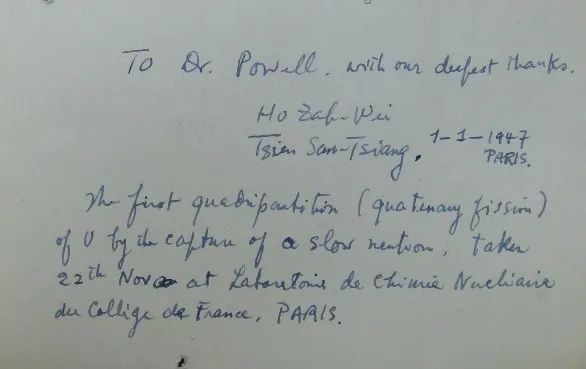 To Dr. Powell, with our deepest thanks.
Ho Zah-Wei
Tsien San-Tsiang.
1-1-1947
PARIS.
The first quadripartition (quaternary fission)
of U by the capture of a slow neutron, taken
22th Nov at Laboratoire de Chimie Nucléaire
du Collège de France, PARIS.